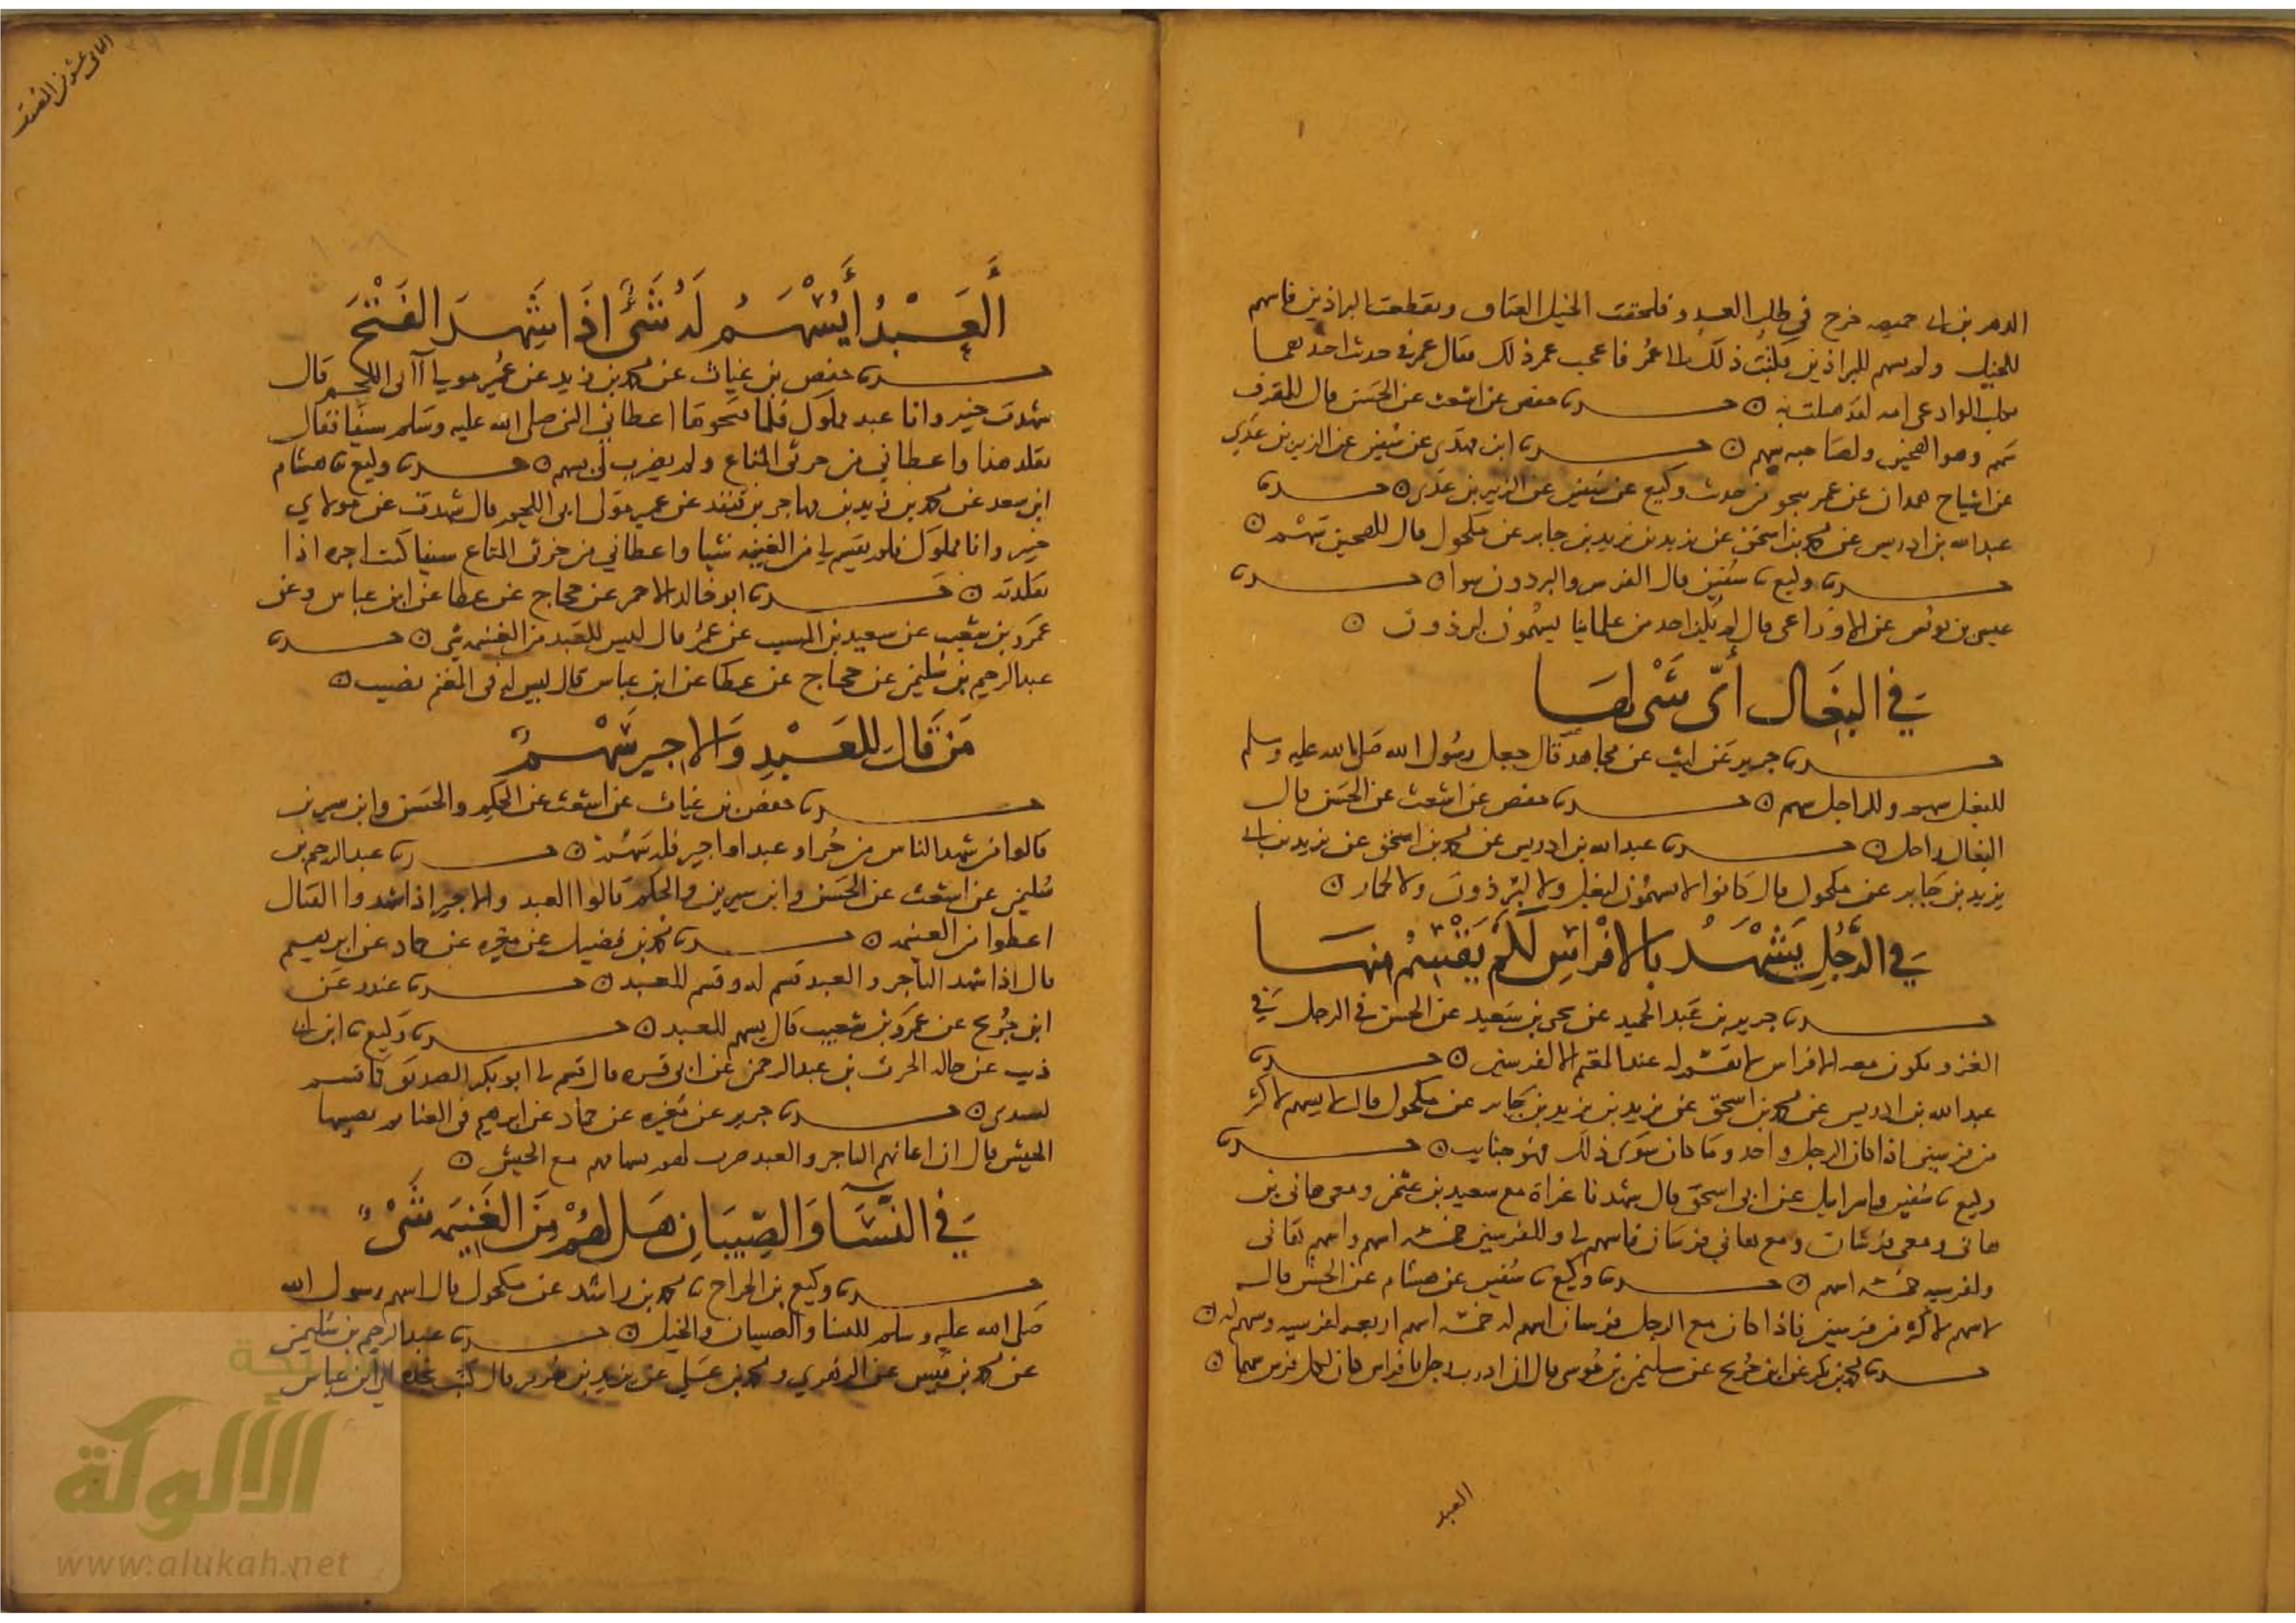 خرج في طلب العدو فلحقت الخيل العتاق وتقطعت البراذين فاسهم
للخيل ولم يسهم للبراذين فكتب ذلك الى عمر فاعجب عمر ذلك فقال عمر
الوادعي امه ۞ حدثنا حفص عن اشعث عن الحسن قال للمقرف
سهم وهو الهجين ولصاحبه سهم ۞ حدثنا ابن مهدي عن سفين عن الزبير بن عدي
عن اشياخ همدان عن عمر بنحو من حديث وكيع عن سفين عن الزبير بن عدي ۞ حدثنا
عبدالله بن ادريس عن محمد بن اسحق عن يزيد بن يزيد بن جابر عن مكحول قال للهجين سهم ۞
حدثنا وكيع نا سفين قال الفرس والبرذون سوا ۞ حدثنا
عيسى بن يونس عن الاوزاعي قال لم يكن احد من علمائنا يسهمون لبرذون ۞
في البغال أي شيء لها
حدثنا جرير عن ليث عن مجاهد قال جعل رسول الله صلى الله عليه وسلم
للبغل سهم وللراجل سهم ۞ حدثنا حفص عن اشعث عن الحسن قال
البغال راجل ۞ حدثنا عبدالله بن ادريس عن محمد بن اسحق عن يزيد بن
يزيد بن جابر عن مكحول قال كانوا لا يسهمون لبغل ولا لبرذون ولا لحمار ۞
في الرجل يشهد بالافراس لكم يقسم منها
حدثنا جرير بن عبد الحميد عن يحيى بن سعيد عن الحسن في الرجل في
الغزو يكون معه الافراس لا يقسم له عند المغنم الا لفرسين ۞ حدثنا
عبد الله بن ادريس عن محمد بن اسحق عن يزيد بن يزيد بن جابر عن مكحول قال لا يسهم لاكثر
من فرسين اذا كان الرجل واحد وما كان سوى ذلك فهو جنايب ۞ حدثنا
وكيع نا سفين واسرايل عن ابي اسحق قال شهدنا غزاة مع سعيد بن عثمن ومعي هاني بن
هاني ومعي فرسان ومع هاني فرسان فاسهم لي وللفرسين خمسة اسهم واسهم لهاني
ولفرسيه خمسة اسهم ۞ حدثنا وكيع نا سفين عن هشام عن الحسن قال
لا يسهم لاكثر من فرسين فاذا كان مع الرجل فرسان اسهم له خمسة اسهم اربعه لفرسيه وسهم له ۞
حدثنا محمد بن بكر عن ابن جريج عن سليمن بن موسى قال ان ادرب رجل بافراس كان لكل فرس سهمان ۞
العبد
الثاني عشر من المصنف
العبد أيسهم له شيء اذا شهد الفتح
حدثنا حفص بن غياث عن محمد بن زيد عن عمير مولى آبي اللحم قال
شهدت خيبر وانا عبد مملوك فلما فتحوها اعطاني النبي صلى الله عليه وسلم سيفا فقال
تقلد هذا واعطاني من خرثي المتاع ولم يضرب لي بسهم ۞ حدثنا وكيع نا هشام
ابن سعد عن محمد بن زيد بن مهاجر بن قنفذ عن عمير مولى ابي اللحم قال شهدت عن مولاي
خيبر وانا مملوك فلم يقسم لي من الغنيمه شيا واعطاني من خرثي المتاع سيفا كنت اجره اذا
تقلدته ۞ حدثنا ابو خالد الاحمر عن حجاج عن عطا عن ابن عباس وعن
عمرو بن شعيب عن سعيد بن المسيب عن عمر قال ليس للعبد من الغنيمه شي ۞ حدثنا
عبدالرحيم بن سليمن عن حجاج عن عطا عن ابن عباس قال ليس له في المغنم نصيب ۞
من قال للعبد والاجير سهم
حدثنا حفص بن غياث عن اشعث عن الحكم والحسن وابن سيرين
قالوا من شهد الناس من حر او عبد او اجير فله سهم ۞ حدثنا عبد الرحيم بن
سليمن عن اشعث عن الحسن وابن سيرين والحكم قالوا العبد والاجير اذا شهدوا القتال
اعطوا من الغنيمه ۞ حدثنا محمد بن فضيل عن مغيره عن حماد عن ابرهيم
قال اذا شهد التاجر والعبد قسم له وقسم للعبد ۞ حدثنا غندر عن
ابن جريج عن عمرو بن شعيب قال يسهم للعبد ۞ حدثنا وكيع نا ابن ابي
ذيب عن خاله الحرث بن عبد الرحمن عن ابي قره قال قسم لي ابو بكر الصديق كما قسم
لسيدي ۞ حدثنا جرير عن مغيره عن حماد عن ابرهيم في الغنايم يصيبها
الجيش قال ان اعانهم التاجر والعبد ضرب لهم بسهامهم مع الجيش ۞
في النسا والصبيان هل لهم من الغنيمه شيء
حدثنا وكيع بن الجراح نا محمد بن راشد عن مكحول قال اسهم رسول الله
صلى الله عليه وسلم للنسا والصبيان والخيل ۞ حدثنا عبدالرحيم بن سليمن
عن محمد بن اسحق عن الزهري ومحمد بن علي عن يزيد بن هرمز قال كتب نجدة الى ابن عباس
شبكة
الألوكة
www.alukah.net